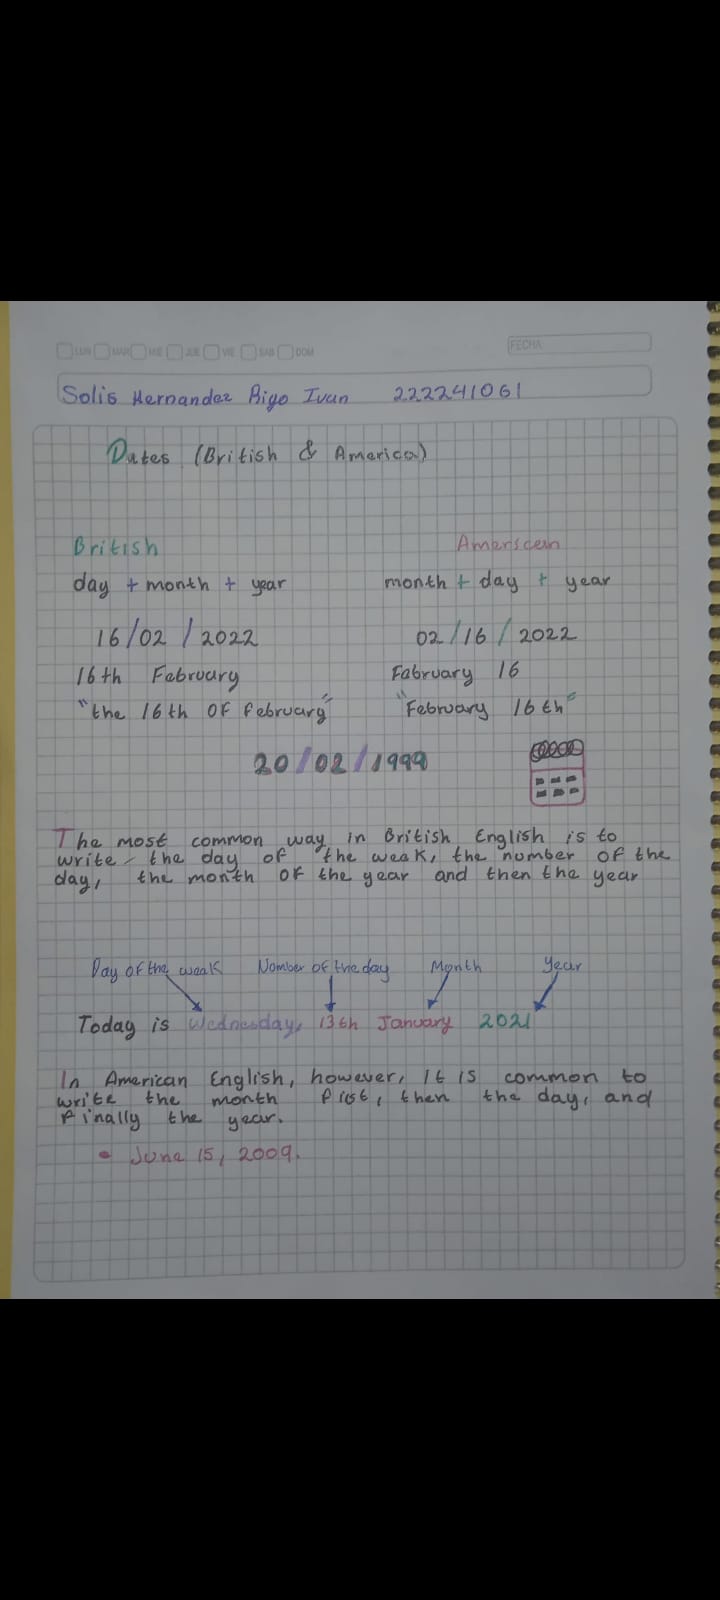 LUN MAR MIE JUE VIE SAB DOM FECHA
Solis Hernandez Rigo Ivan 222241061
Dates (British & America)
British Amerscan
day + month + year month + day + year
16/02/2022 02/16/2022
16th February Fabruary 16
"the 16th OF February" "February 16th"
20/02/1999
The most common way in British English is to
write the day of the weak, the number of the
day, the month of the year and then the year
Day of the weak Nomber of the day Month Year
Today is Wednesday, 13th January 2021
In American English, however, It is common to
write the month fist, then the day, and
finally the year.
• June 15, 2009.